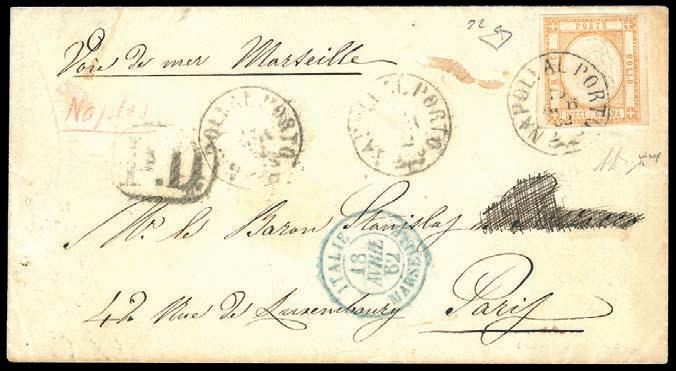 22
Voie de mer Marseille
Naples
POSTE
BOLLO
NAPOLI AL PORTO
NAPOLI AL PORTO
NAPOLI AL PORTO
P.D.
Mr. le Baron Stanislas
ITALIE
18
AVRIL
62
MARSEILLE
42 Rue de Luxembourg Paris